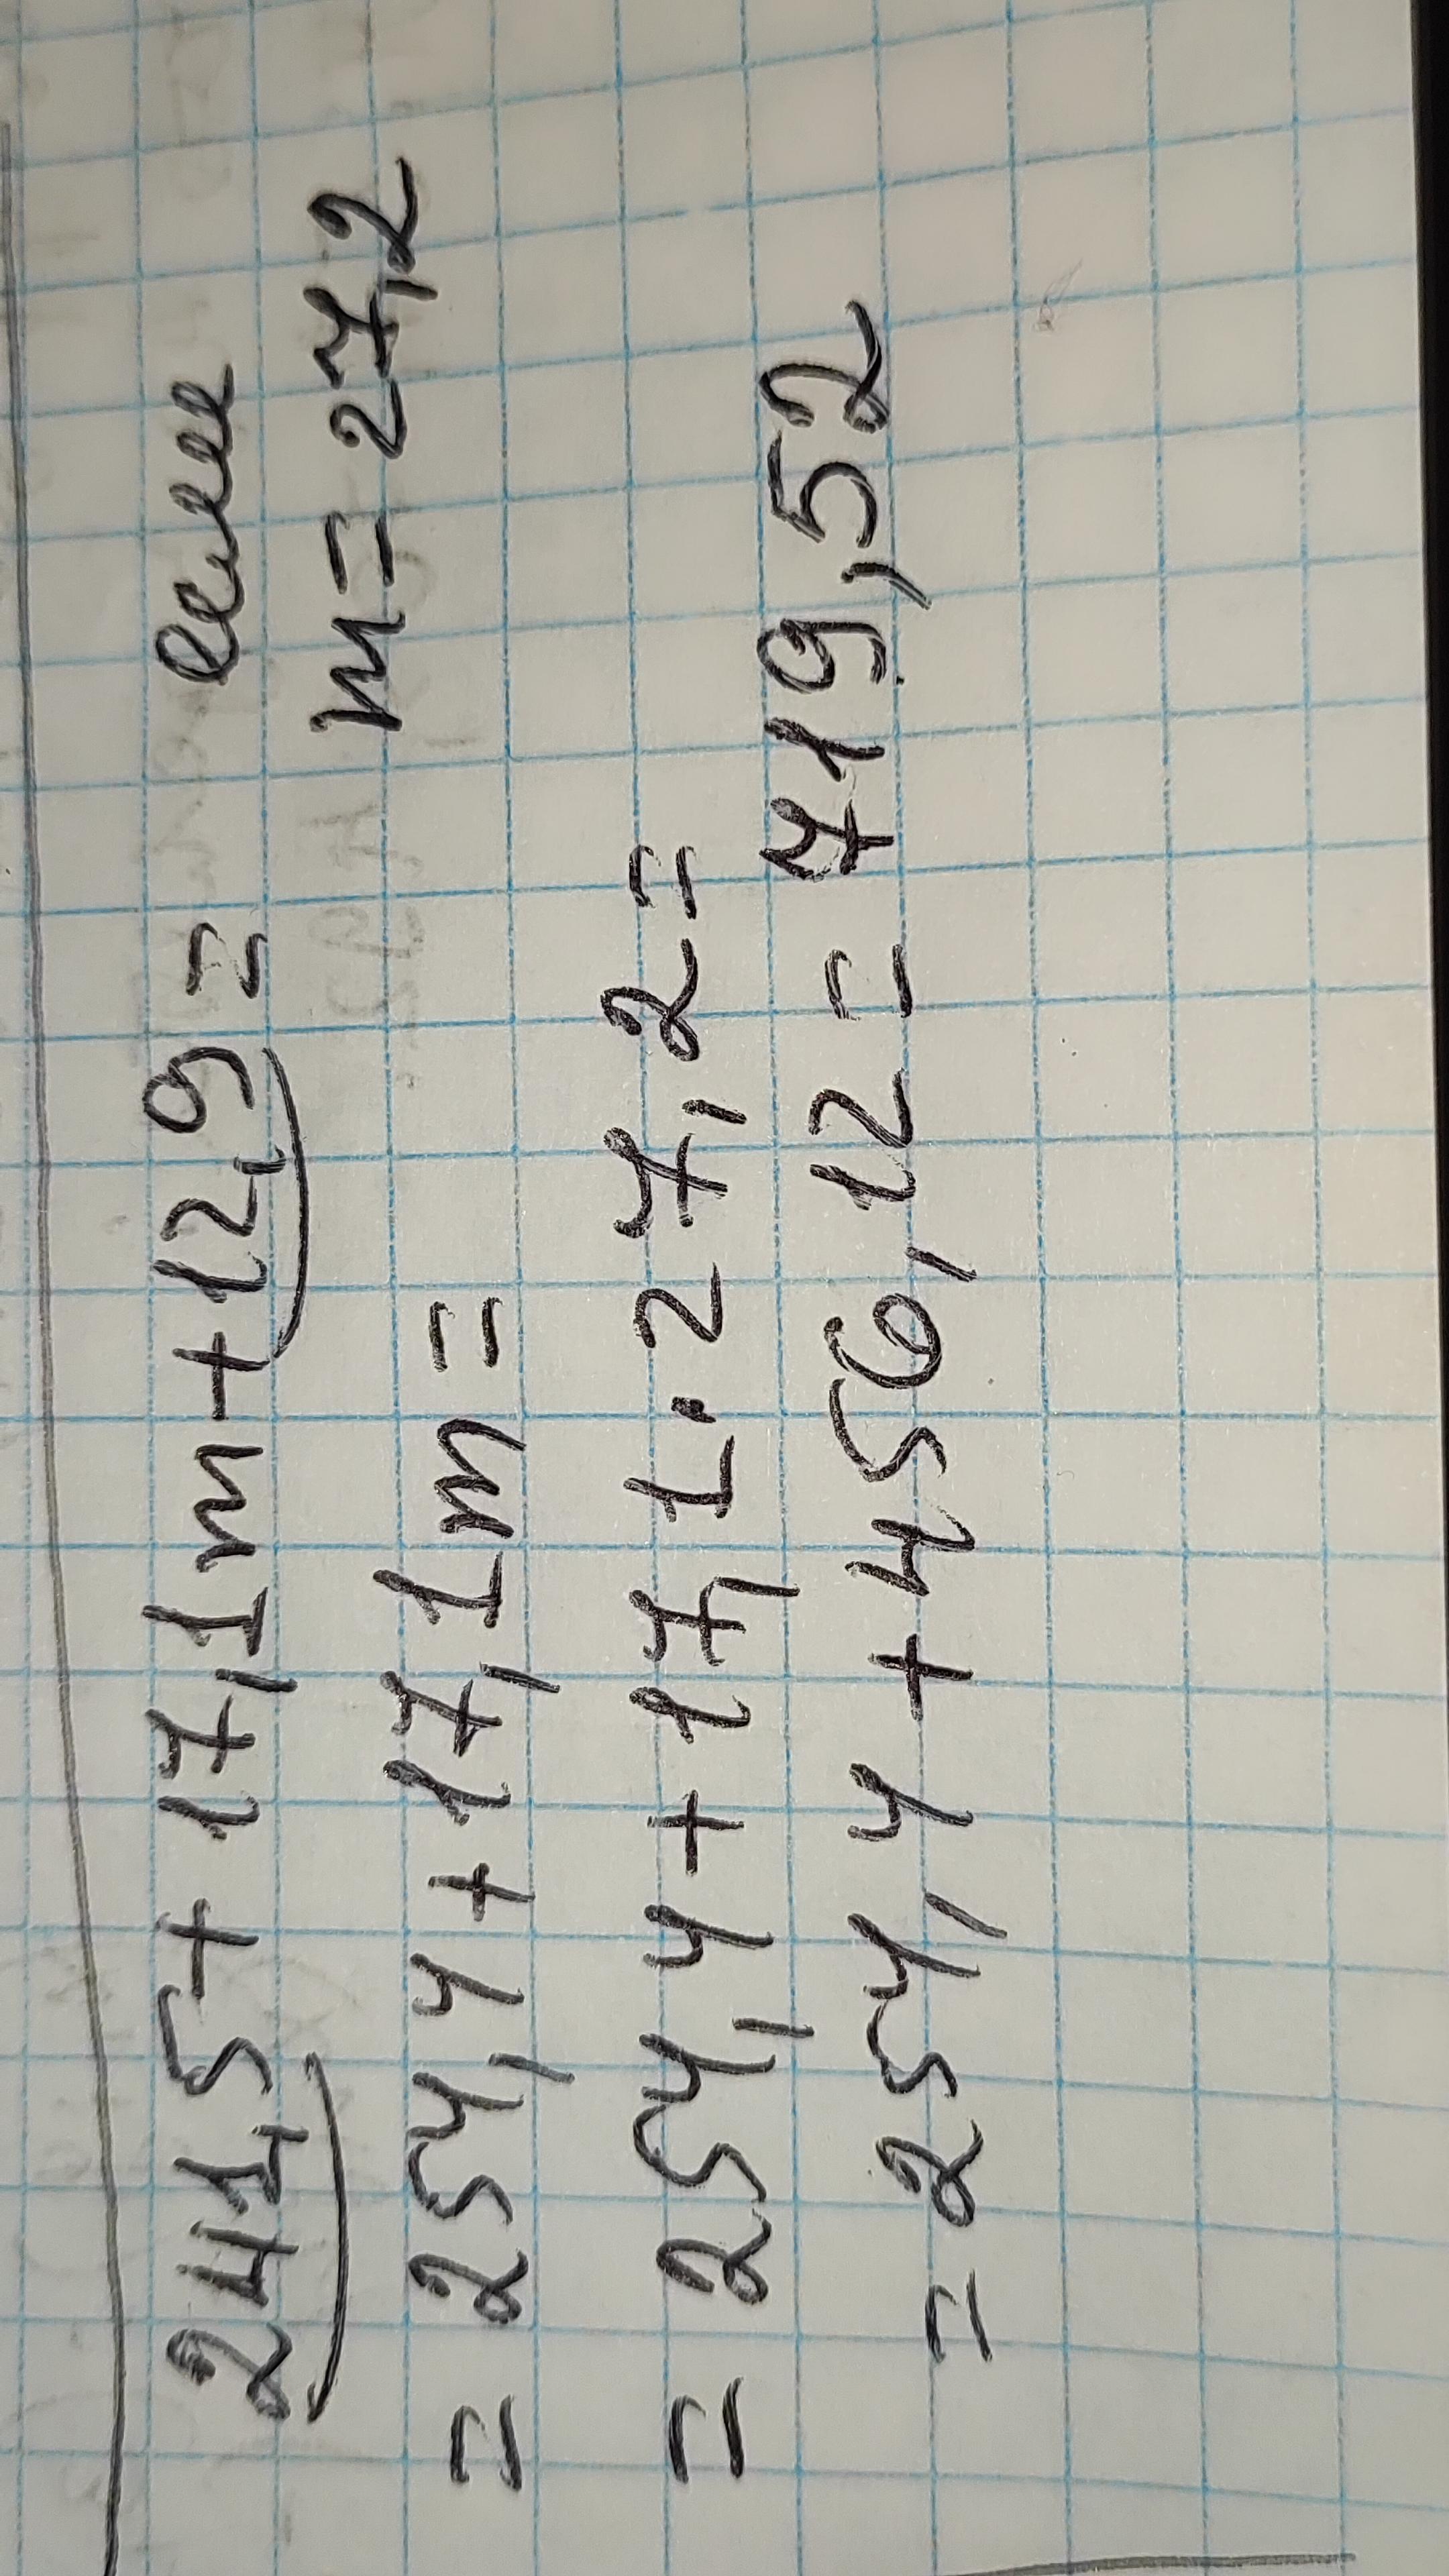 241,5 + 17,1m + 12,9 = если
m = 27,2
= 254,4 + 17,1m =
= 254,4 + 17,1 · 27,2 =
= 254,4 + 456,12 = 719,52